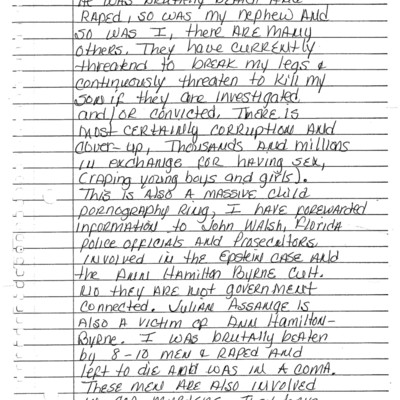 HE WAS BRUTALLY BEATEN AND
RAPED, SO WAS MY NEPHEW AND
SO WAS I, THERE ARE MANY
OTHERS. THEY HAVE CURRENTLY
THREATEND TO BREAK MY LEGS &
CONTINUOUSLY THREATEN TO KILL MY
SON IF THEY ARE INVESTIGATED
AND/OR CONVICTED. THERE IS
MOST CERTAINLY CORRUPTION AND
COVER-UP, THOUSANDS AND MILLIONS
IN EXCHANGE FOR HAVING SEX,
(RAPING YOUNG BOYS AND GIRLS).
THIS IS ALSO A MASSIVE CHILD
PORNOGRAPHY RING, I HAVE FOREWARDED
INFORMATION TO JOHN WALSH, FLORIDA
POLICE OFFICIALS AND PROSECUTORS
INVOLVED IN THE EPSTEIN CASE AND
THE ANN HAMILTON BYRNE CULT.
NO THEY ARE NOT GOVERNMENT
CONNECTED. JULIAN ASSANGE IS
ALSO A VICTIM OF ANN HAMILTON-
BYRNE. I WAS BRUTALLY BEATEN
BY 8-10 MEN & RAPED AND
LEFT TO DIE AND WAS IN A COMA.
THESE MEN ARE ALSO INVOLVED